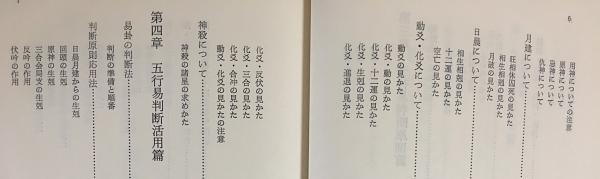 6
用神についての注意
原神について
忌神について
仇神について
月建について
旺相休囚死の見かた
相生相剋の見かた
月破の見かた
日辰について
相生相剋の見かた
十二運の見かた
空亡の見かた
動爻・化爻について
動爻の見かた
化爻・動の見かた
化爻・十二運の見かた
化爻・生剋の見かた
化爻・進退の見かた
化爻・反伏の見かた
化爻・三合の見かた
化爻・合冲の見かた
動爻・化爻の見かたの注意
神殺について
神殺の諸星の求めかた
第四章 五行易判断活用篇
易卦の判断法
判断の準備と順番
判断原則活用法
日辰月建からの生剋
回頭の生剋
原神の生剋
三合会局支の生剋
反吟の作用
伏吟の作用